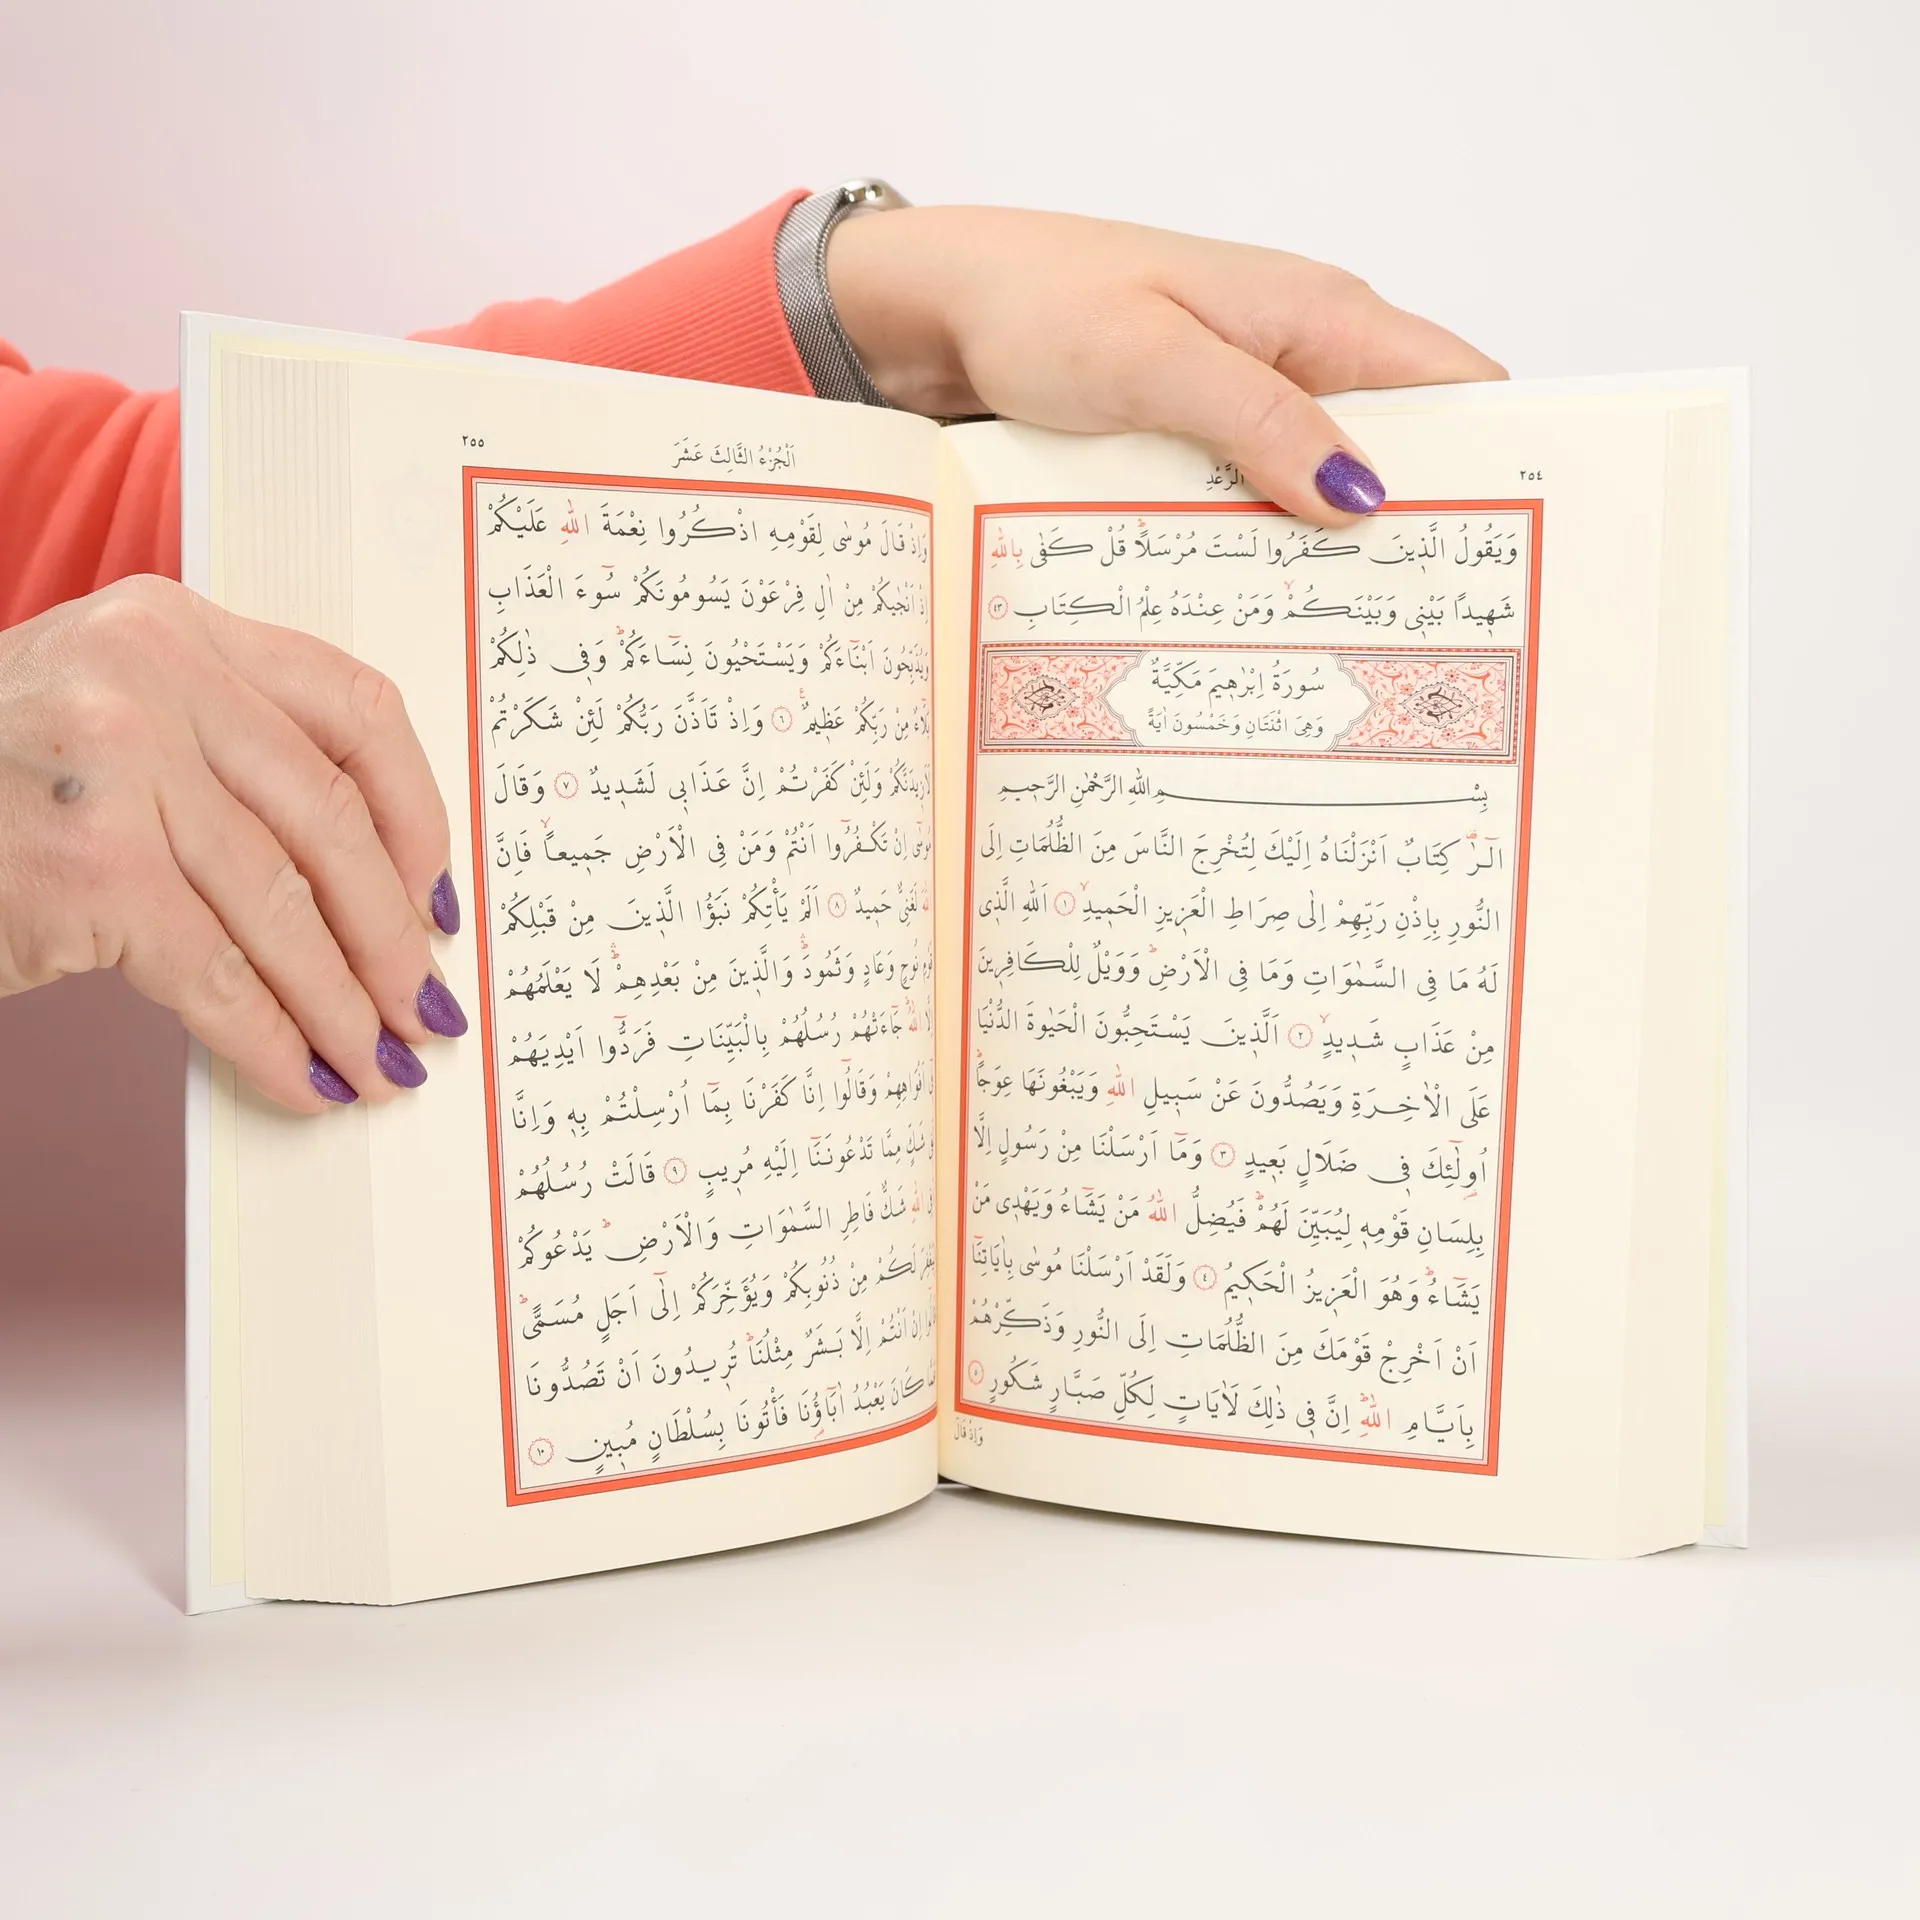 الرَّعْدِ
٢٥٤
وَيَقُولُ الَّذِينَ كَفَرُوا لَسْتَ مُرْسَلاًۜ قُلْ كَفٰى بِاللّٰهِ
شَهِيدًا بَيْنِي وَبَيْنَكُمْۙ وَمَنْ عِنْدَهُ عِلْمُ الْكِتَابِ ٤٣
سُورَةُ اِبْرٰهِيمَ مَكِّيَّةٌ
وَهِيَ اثْنَتَانِ وَخَمْسُونَ اٰيَةً
بِسْمِ اللّٰهِ الرَّحْمٰنِ الرَّحِيمِ
الٓرٰ۠ كِتَابٌ اَنْزَلْنَاهُ اِلَيْكَ لِتُخْرِجَ النَّاسَ مِنَ الظُّلُمَاتِ اِلَى
النُّورِ بِاِذْنِ رَبِّهِمْ اِلٰى صِرَاطِ الْعَزِيزِ الْحَمِيدِۙ ١ اَللّٰهِ الَّذِي
لَهُ مَا فِي السَّمٰوَاتِ وَمَا فِي الْاَرْضِۜ وَوَيْلٌ لِلْكَافِرِينَ
مِنْ عَذَابٍ شَدِيدٍۙ ٢ اَلَّذِينَ يَسْتَحِبُّونَ الْحَيٰوةَ الدُّنْيَا
عَلَى الْاٰخِرَةِ وَيَصُدُّونَ عَنْ سَبِيلِ اللّٰهِ وَيَبْغُونَهَا عِوَجاًۜ
اُو۬لٰٓئِكَ فِي ضَلَالٍ بَعِيدٍ ٣ وَمَٓا اَرْسَلْنَا مِنْ رَسُولٍ اِلَّا
بِلِسَانِ قَوْمِهِ لِيُبَيِّنَ لَهُمْۜ فَيُضِلُّ اللّٰهُ مَنْ يَشَٓاءُ وَيَهْدِي مَنْ
يَشَٓاءُۜ وَهُوَ الْعَزِيزُ الْحَكِيمُ ٤ وَلَقَدْ اَرْسَلْنَا مُوسٰى بِاٰيَاتِنَٓا
اَنْ اَخْرِجْ قَوْمَكَ مِنَ الظُّلُمَاتِ اِلَى النُّورِ وَذَكِّرْهُمْ
بِاَيَّامِ اللّٰهِۜ اِنَّ فِي ذٰلِكَ لَاٰيَاتٍ لِكُلِّ صَبَّارٍ شَكُورٍ ٥
وَاِذْ قَالَ
اَلْجُزْءُ الثَّالِثَ عَشَرَ
٢٥٥
وَاِذْ قَالَ مُوسٰى لِقَوْمِهِ اذْكُرُوا نِعْمَةَ اللّٰهِ عَلَيْكُمْ
اِذْ اَنْجٰيكُمْ مِنْ اٰلِ فِرْعَوْنَ يَسُومُونَكُمْ سُٓوءَ الْعَذَابِ
وَيُذَبِّحُونَ اَبْنَٓاءَكُمْ وَيَسْتَحْيُونَ نِسَٓاءَكُمْۜ وَفِي ذٰلِكُمْ
بَلَٓاءٌ مِنْ رَبِّكُمْ عَظِيمٌ۟ ٦ وَاِذْ تَاَذَّنَ رَبُّكُمْ لَئِنْ شَكَرْتُمْ
لَاَزِيدَنَّكُمْ وَلَئِنْ كَفَرْتُمْ اِنَّ عَذَابِي لَشَدِيدٌ ٧ وَقَالَ
مُوسٰٓى اِنْ تَكْفُرُٓوا اَنْتُمْ وَمَنْ فِي الْاَرْضِ جَمِيعاًۙ فَاِنَّ
اللّٰهَ لَغَنِيٌّ حَمِيدٌ ٨ اَلَمْ يَأْتِكُمْ نَبَؤُا الَّذِينَ مِنْ قَبْلِكُمْ
قَوْمِ نُوحٍ وَعَادٍ وَثَمُودَۜ وَالَّذِينَ مِنْ بَعْدِهِمْۜ لَا يَعْلَمُهُمْ
اِلَّا اللّٰهُۜ جَٓاءَتْهُمْ رُسُلُهُمْ بِالْبَيِّنَاتِ فَرَدُّٓوا اَيْدِيَهُمْ
فِٓي اَفْوَاهِهِمْ وَقَالُٓوا اِنَّا كَفَرْنَا بِمَٓا اُرْسِلْتُمْ بِهِ وَاِنَّا
لَفِي شَكٍّ مِمَّا تَدْعُونَنَٓا اِلَيْهِ مُرِيبٍ ٩ قَالَتْ رُسُلُهُمْ
اَفِي اللّٰهِ شَكٌّ فَاطِرِ السَّمٰوَاتِ وَالْاَرْضِۜ يَدْعُوكُمْ
لِيَغْفِرَ لَكُمْ مِنْ ذُنُوبِكُمْ وَيُؤَخِّرَكُمْ اِلٰٓى اَجَلٍ مُسَمًّىۜ
قَالُٓوا اِنْ اَنْتُمْ اِلَّا بَشَرٌ مِثْلُنَاۜ تُرِيدُونَ اَنْ تَصُدُّونَا
عَمَّا كَانَ يَعْبُدُ اٰبَٓاؤُ۬نَا فَأْتُونَا بِسُلْطَانٍ مُبِينٍ ١٠